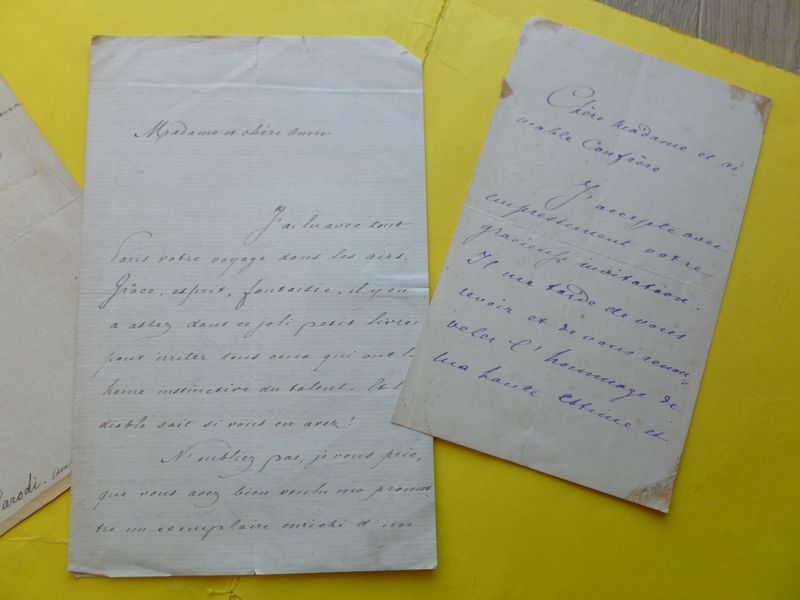 Madame et chère Amie
J'ai lu avec tout
Paris votre voyage dans les airs.
Grâce, esprit, fantaisie, il y en
a assez dans ce joli petit livre
pour irriter tous ceux qui ont l
haine instinctive du talent. Et l
diable sait si vous en avez!
N'oubliez pas, je vous prie,
que vous avez bien voulu me promet-
tre un exemplaire enrichi d'un
Chère Madame et ai
mable Confrère
J'accepte avec
empressement votre
gracieuse invitation.
Il me tarde de vous
revoir et de vous renou-
veler l'hommage de
ma haute estime et
Parodi.